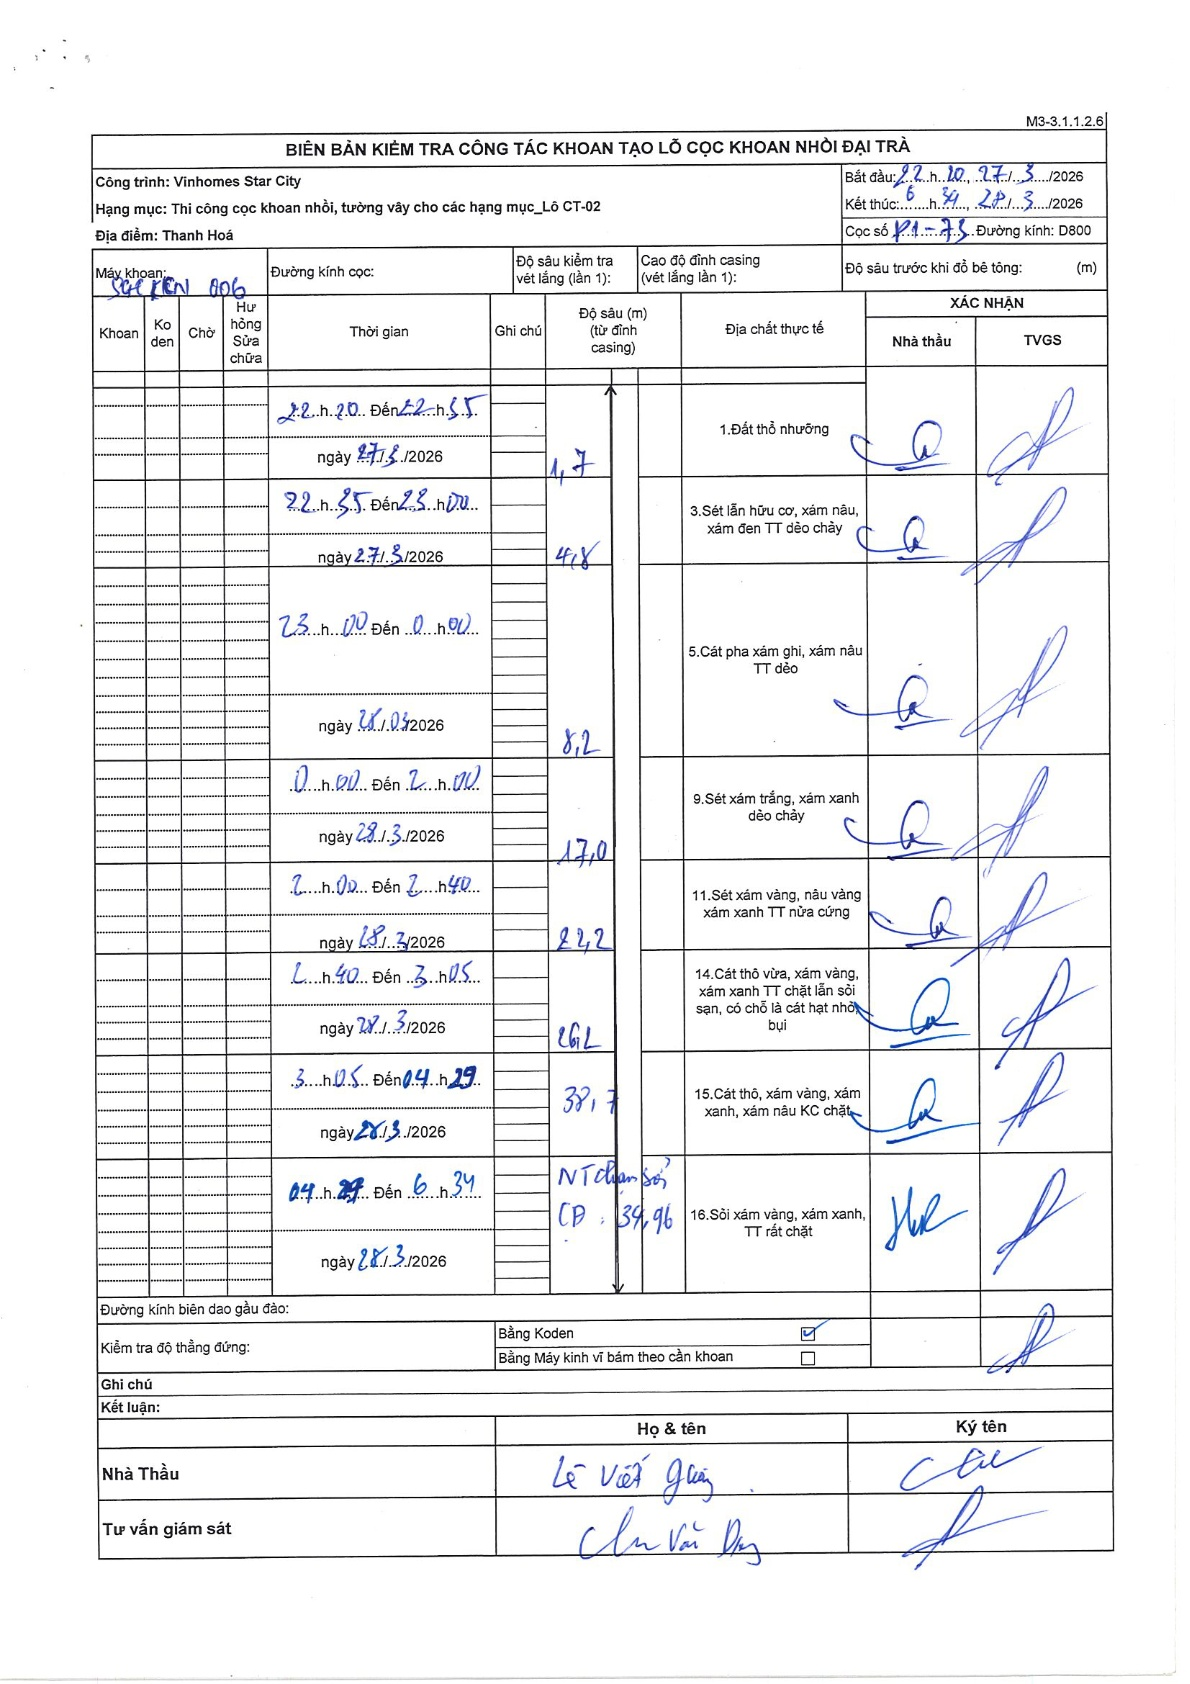 M3-3.1.1.2.6
BIÊN BẢN KIỂM TRA CÔNG TÁC KHOAN TẠO LỖ CỌC KHOAN NHỒI ĐẠI TRÀ
Công trình: Vinhomes Star City
Bắt đầu: 22 h 20, 27/3/2026
Hạng mục: Thi công cọc khoan nhồi, tường vây cho các hạng mục_Lô CT-02
Kết thúc: 6 h 34, 28/3/2026
Địa điểm: Thanh Hoá
Cọc số P1-73 Đường kính: D800
Máy khoan: 006
Đường kính cọc:
Độ sâu kiểm tra vét lắng (lần 1):
Cao độ đỉnh casing (vét lắng lần 1):
Độ sâu trước khi đổ bê tông: (m)
Khoan
Ko den
Chờ
Hư hỏng Sửa chữa
Thời gian
Ghi chú
Độ sâu (m) (từ đỉnh casing)
Địa chất thực tế
XÁC NHẬN
Nhà thầu
TVGS
22 h 20 Đến 22 h 35
ngày 27/3/2026
1,7
1.Đất thổ nhưỡng
22 h 35 Đến 23 h 00
ngày 27/3/2026
4,8
3.Sét lẫn hữu cơ, xám nâu,
xám đen TT dẻo chảy
23 h 00 Đến 0 h 00
ngày 28/03/2026
8,2
5.Cát pha xám ghi, xám nâu
TT dẻo
0 h 00 Đến 2 h 00
ngày 28/3/2026
17,0
9.Sét xám trắng, xám xanh
dẻo chảy
2 h 00 Đến 2 h 40
ngày 28/3/2026
22,2
11.Sét xám vàng, nâu vàng
xám xanh TT nửa cứng
2 h 40 Đến 3 h 05
ngày 28/3/2026
26,2
14.Cát thô vừa, xám vàng,
xám xanh TT chặt lẫn sỏi
sạn, có chỗ là cát hạt nhỏ,
bụi
3 h 05 Đến 04 h 29
ngày 28/3/2026
38,7
15.Cát thô, xám vàng, xám
xanh, xám nâu KC chặt
04 h 29 Đến 6 h 34
ngày 28/3/2026
NT chạm sỏi
CĐ : 39,96
16.Sỏi xám vàng, xám xanh,
TT rất chặt
Đường kính biên dao gầu đào:
Kiểm tra độ thẳng đứng:
Bằng Koden ☑
Bằng Máy kinh vĩ bám theo cần khoan ☐
Ghi chú
Kết luận:
Họ & tên
Ký tên
Nhà Thầu
Lê Viết
Tư vấn giám sát
Chu Văn